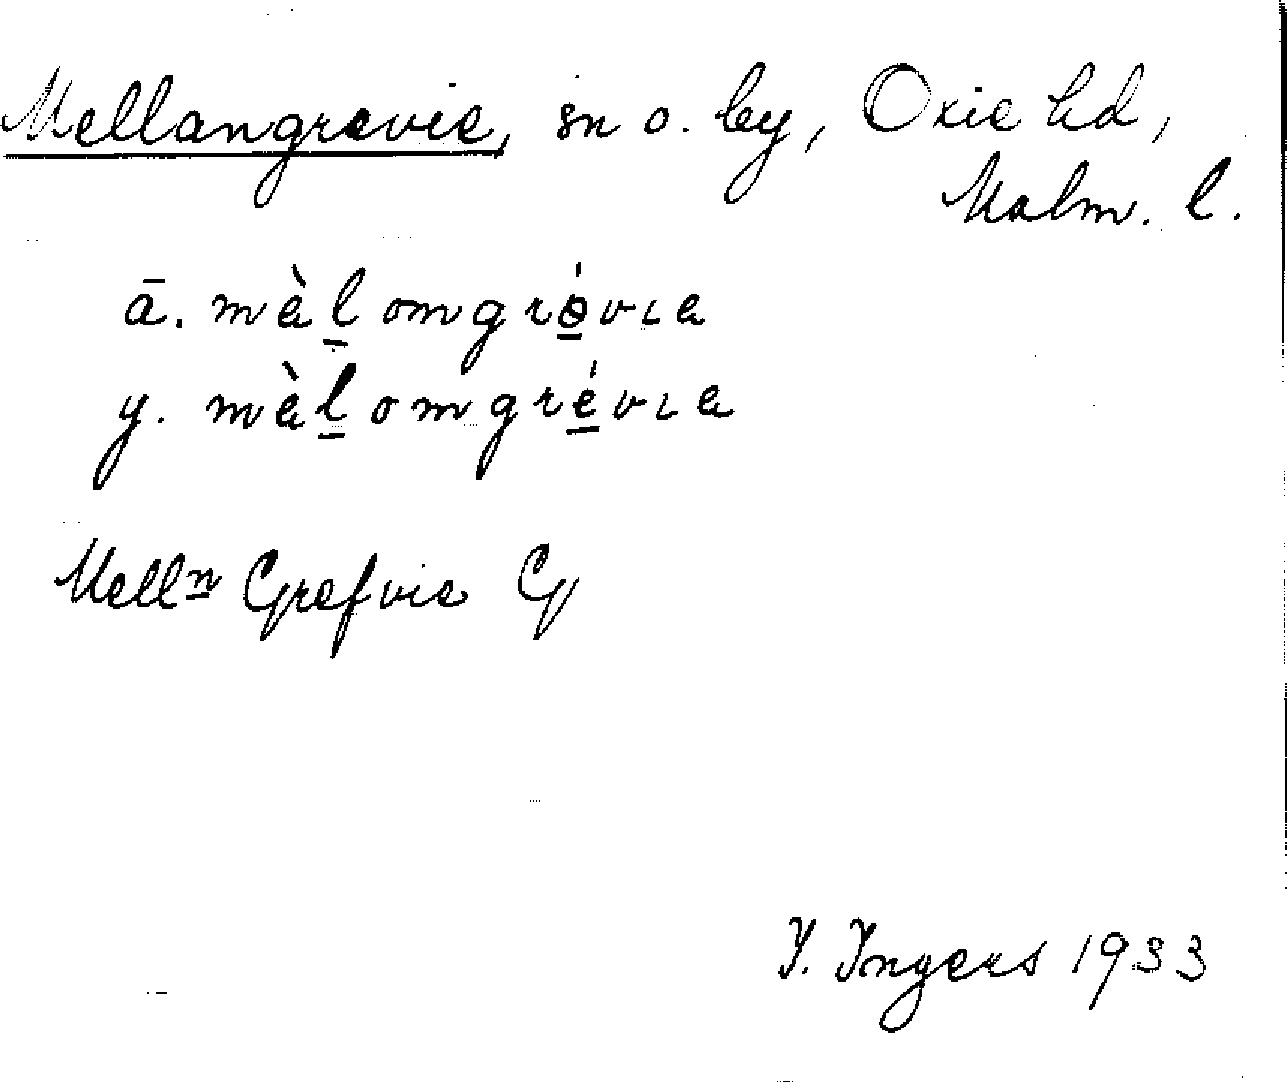 Mellangrevie, sn o. by, Oxie hd,
Malm. l.
ā. mὰl̲omgrǿ̲vıa
y. mὰl̲omgré̲vıa
Mellⁿ Grefvie G
I. Ingers 1933